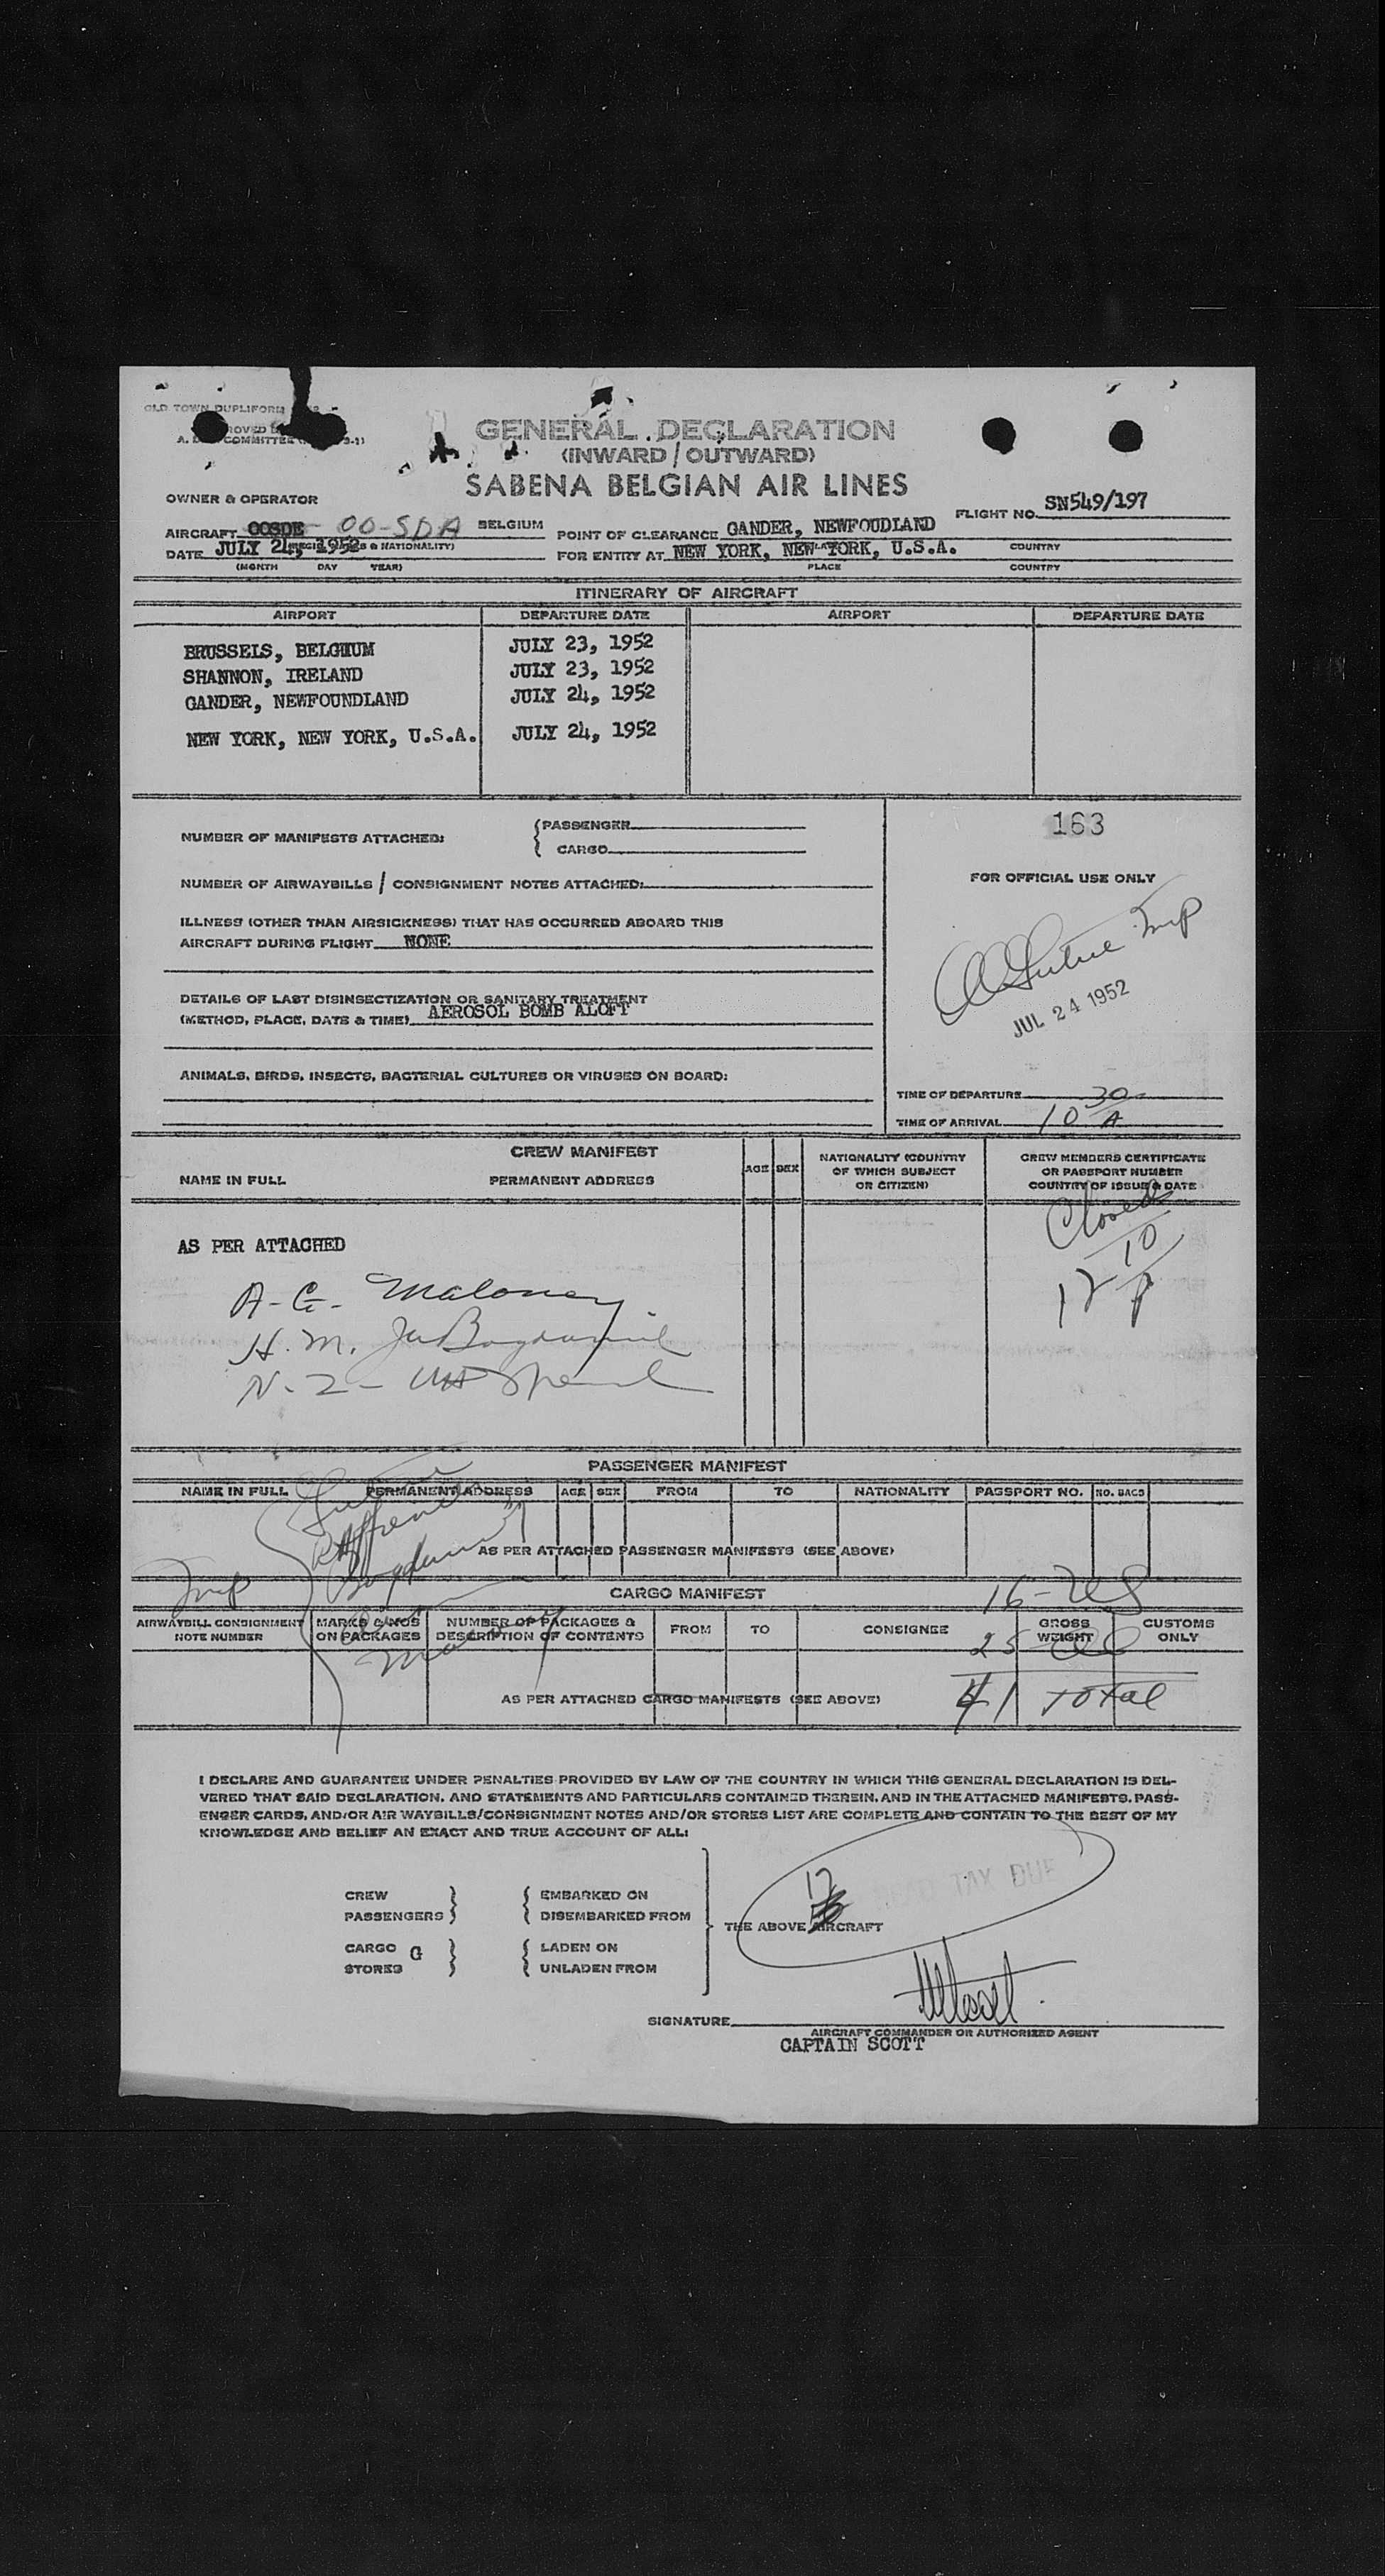 OLD TOWN DUPLIFORM
A. COMMITTEE
GENERAL DECLARATION
(INWARD / OUTWARD)
SABENA BELGIAN AIR LINES
OWNER & OPERATOR
FLIGHT NO. SN549/197
AIRCRAFT OOSDE OO-SDA BELGIUM
POINT OF CLEARANCE GANDER, NEWFOUDLAND
DATE JULY 24, 1952 & NATIONALITY)
FOR ENTRY AT NEW YORK, NEW YORK, U.S.A. COUNTRY
(MONTH DAY YEAR) PLACE COUNTRY
ITINERARY OF AIRCRAFT
AIRPORT DEPARTURE DATE AIRPORT DEPARTURE DATE
BRUSSELS, BELGIUM JULY 23, 1952
SHANNON, IRELAND JULY 23, 1952
GANDER, NEWFOUNDLAND JULY 24, 1952
NEW YORK, NEW YORK, U.S.A. JULY 24, 1952
163
NUMBER OF MANIFESTS ATTACHED: PASSENGER
CARGO
FOR OFFICIAL USE ONLY
NUMBER OF AIRWAYBILLS / CONSIGNMENT NOTES ATTACHED:
ILLNESS (OTHER THAN AIRSICKNESS) THAT HAS OCCURRED ABOARD THIS
AIRCRAFT DURING FLIGHT NONE
Imp
JUL 24 1952
DETAILS OF LAST DISINSECTIZATION OR SANITARY TREATMENT
(METHOD, PLACE, DATE & TIME) AEROSOL BOMB ALOFT
ANIMALS, BIRDS, INSECTS, BACTERIAL CULTURES OR VIRUSES ON BOARD:
TIME OF DEPARTURE
TIME OF ARRIVAL 10 30 A
CREW MANIFEST
NAME IN FULL PERMANENT ADDRESS AGE SEX NATIONALITY (COUNTRY OF WHICH SUBJECT OR CITIZEN) CREW MEMBERS CERTIFICATE OR PASSPORT NUMBER COUNTRY OF ISSUE & DATE
Closed
12 10 P
AS PER ATTACHED
A. G. Maloney
H. M.
N-2-
PASSENGER MANIFEST
NAME IN FULL PERMANENT ADDRESS AGE SEX FROM TO NATIONALITY PASSPORT NO. NO. BAGS
AS PER ATTACHED PASSENGER MANIFESTS (SEE ABOVE)
Imp
CARGO MANIFEST
16-US
AIRWAYBILL CONSIGNMENT NOTE NUMBER MARKS & NOS ON PACKAGES NUMBER OF PACKAGES & DESCRIPTION OF CONTENTS FROM TO CONSIGNEE GROSS WEIGHT CUSTOMS ONLY
25
AS PER ATTACHED CARGO MANIFESTS (SEE ABOVE)
41 total
I DECLARE AND GUARANTEE UNDER PENALTIES PROVIDED BY LAW OF THE COUNTRY IN WHICH THIS GENERAL DECLARATION IS DEL-
VERED THAT SAID DECLARATION, AND STATEMENTS AND PARTICULARS CONTAINED THEREIN, AND IN THE ATTACHED MANIFESTS, PASS-
ENGER CARDS, AND/OR AIR WAYBILLS/CONSIGNMENT NOTES AND/OR STORES LIST ARE COMPLETE AND CONTAIN TO THE BEST OF MY
KNOWLEDGE AND BELIEF AN EXACT AND TRUE ACCOUNT OF ALL:
CREW EMBARKED ON
PASSENGERS DISEMBARKED FROM
TAX DUE
THE ABOVE AIRCRAFT
CARGO G LADEN ON
STORES UNLADEN FROM
SIGNATURE
AIRCRAFT COMMANDER OR AUTHORIZED AGENT
CAPTAIN SCOTT